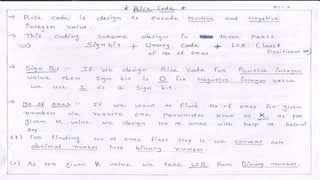 * Rice Code *
RC-1
→ Rice code is design to encode Positive and Negative
Integer value.
→ This coding scheme design in three parts
⇒ Sign bit + Unary code + LSB (least
of No of ones Significant Bit)
→ Sign Bit :- If we design Rice code for Positive integer
value then sign bit is 0 for Negative integer value
we use 1 as a sign bit.
→ No of ones :- If we want to find No of ones for given
number we require one parameter know as K. as per
given K value we design no of ones with help of below
step.
(1) For finding no of ones first step is we convert our
decimal number into binary number.
(2) As per given K value we take LSB from binary number.